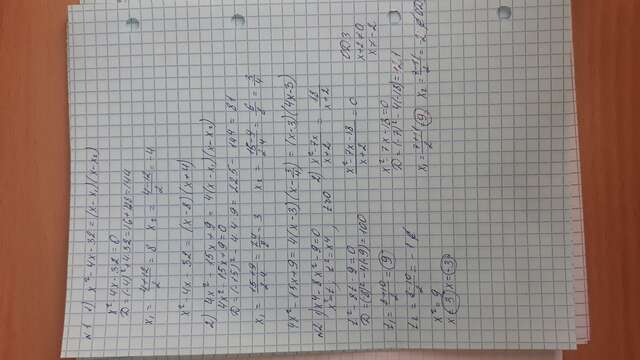 N1 1) x² - 4x - 32 = (x - x₁)(x - x₂)
x² - 4x - 32 = 0
D = (-4)² + 4·32 = 16 + 128 = 144
x₁ = (4+12)/2 = 8 x₂ = (4-12)/2 = 4
x² - 4x - 32 = (x - 8)(x + 4)
2) 4x² - 15x + 9 = 4(x - x₁)(x - x₂)
4x² - 15x + 9 = 0
D = (-15)² - 4·4·9 = 225 - 144 = 81
x₁ = (15+9)/(2·4) = 24/8 = 3 x₂ = (15-9)/(2·4) = 6/8 = 3/4
4x² - 15x + 9 = 4(x - 3)(x - 3/4) = (x - 3)(4x - 3)
N2 1) x⁴ - 8x² - 9 = 0
x² = t, t² = x⁴, t≥0
t² - 8t - 9 = 0
D = (8)² - 4(-9) = 100
t₁ = (8+10)/2 = 9
t₂ = (8-10)/2 = -1
x² = 9
x = 3 x = -3
2) (x² - 7x)/(x+2) = 18/(x+2)
(x² - 7x - 18)/(x+2) = 0
ОДЗ
x + 2 ≠ 0
x ≠ -2
x² - 7x - 18 = 0
D = (-7)² - 4(-18) = 121